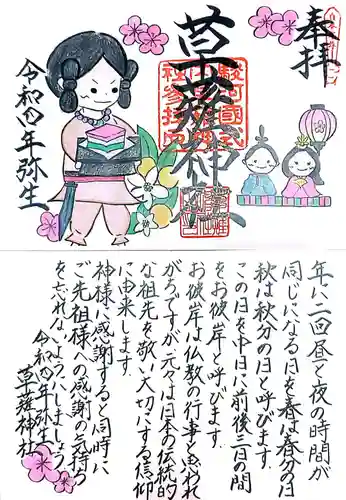 奉拝
草薙神社
駿河國式
内草薙神
社参拝印
令和四年弥生
年に二回昼と夜の時間が
同じになる日を春は春分の日
秋は秋分の日と呼びます。
この日を中日に前後三日の間
をお彼岸と呼びます。
お彼岸は仏教の行事と思われ
がちですが元々は日本の伝統的
な祖先を敬い大切にする信仰
に由来します。
神様に感謝すると同時に
ご先祖様への感謝の気持ち
を忘れないようにしましょう
令和四年弥生
草薙神社